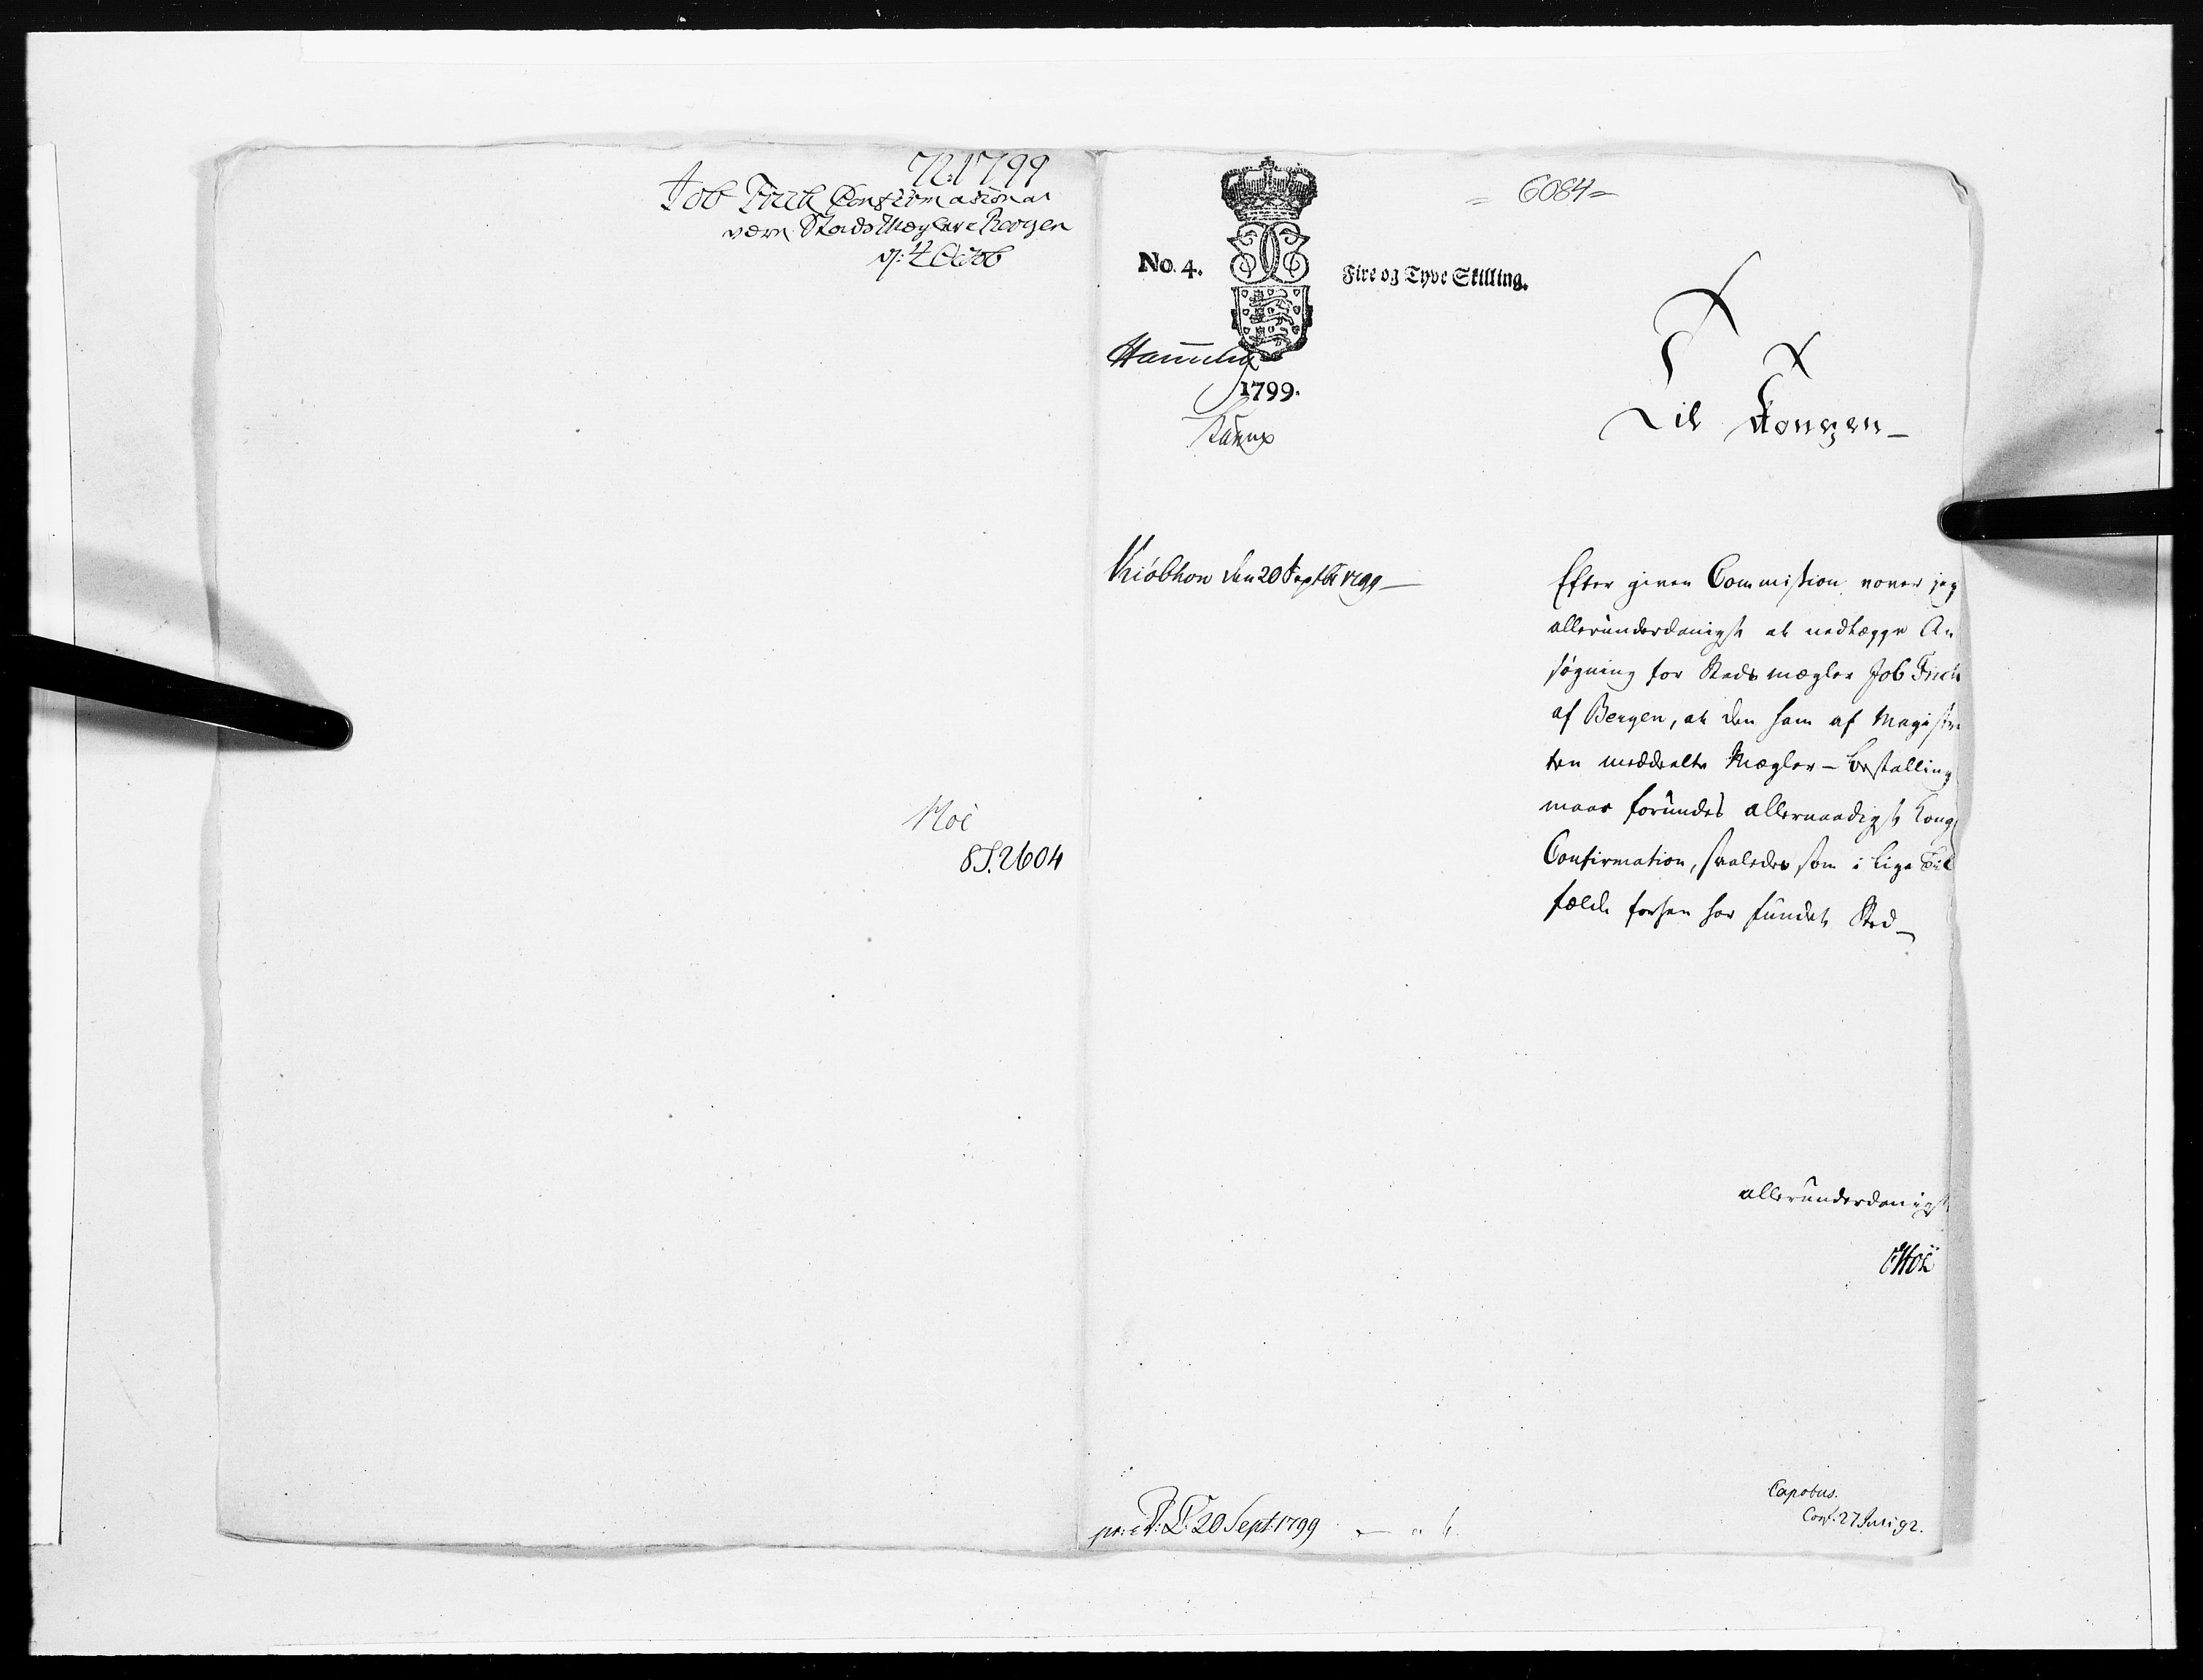 72. 1799
Job Frich Confirmation at
være Stads Mægler i Bergen
d: 4 Octob
Höé
8S. 2604
6084
No. 4.
Fire og Tyve Skilling.
1799.
Til Kongen
Kiöbhvn den 20 Septbr 1799
Efter given Commission vover jeg
allerunderdanigst at nedlægge An-
søgning for Stadsmægler Job Frich
af Bergen, at den ham af Magistra
ten meddeelte Mægler-Bestalling
maae forundes allernaadigst Kong
Confirmation, saaledes som i lige Til
fælde forhen har fundet Sted
allerunderdanigst
Höé
pr: d: 20 Sept: 1799
Capobus.
Conf. 27 Juli 92.